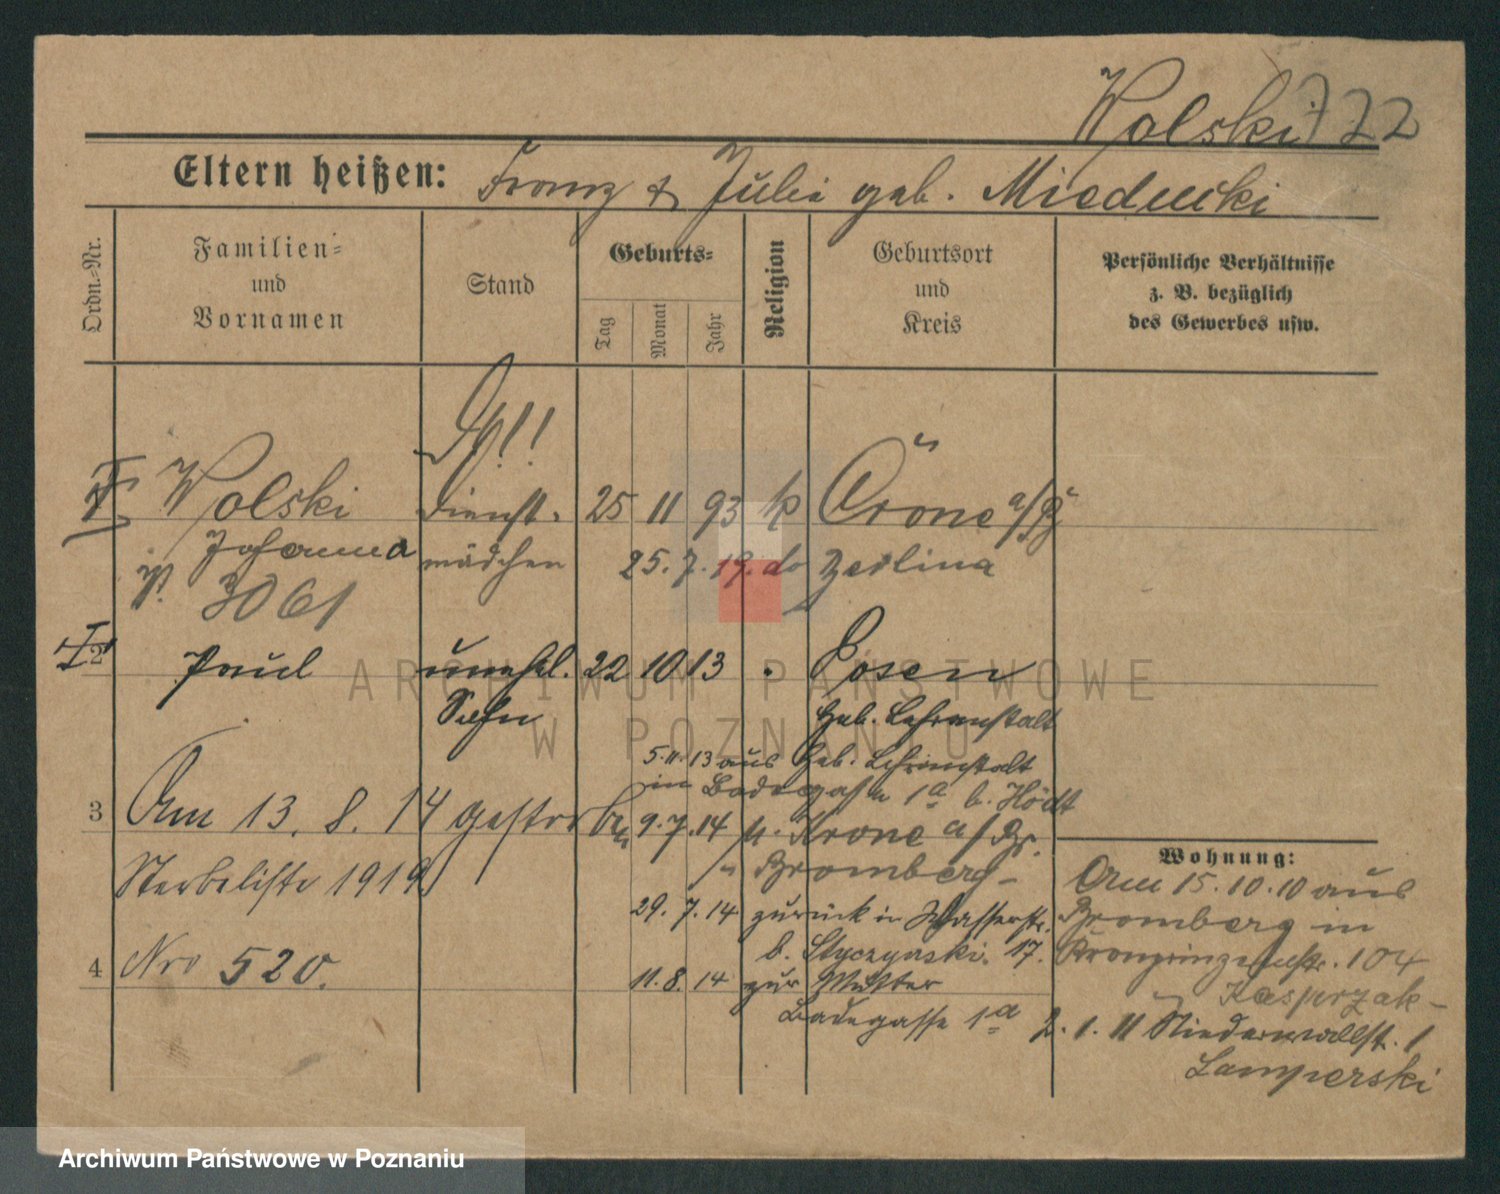 Wolski 722
Eltern heißen: Franz & Julie geb. Mieducki
Ordn.-Nr.
Familien-
und
Vornamen
Stand
Geburts-
Tag
Monat
Jahr
Religion
Geburtsort
und
Kreis
Persönliche Verhältnisse
z. B. bezüglich
des Gewerbes usw.
Wolski Dienst- 25 11 93 k Crone a/B
Johanna mädchen 25.7.19. do
3061
2 Paul unehl. 22 10 13 Posen
Sohn Heb. Lehranstalt
5.11.13 aus Heb. Lehranstalt
in Badegasse 1a b. Hödt
3 Am 13. 8. 14 gestorben 9.7.14 n. Krone a/Br.
Bromberg
Sterbeliste 1919
29. 7. 14 zurück in Wasserstr.
b. Styczynski 17.
4 Nro 520.
11. 8. 14 zur Mutter
Badegasse 1a
Wohnung:
Am 15.10.10 aus
Bromberg in
Kronprinzenstr. 104
Kasprzak
2. 1. 11 Niederwallstr. 1
Lamperski
ARCHIWUM PAŃSTWOWE
W POZNANIU
Archiwum Państwowe w Poznaniu